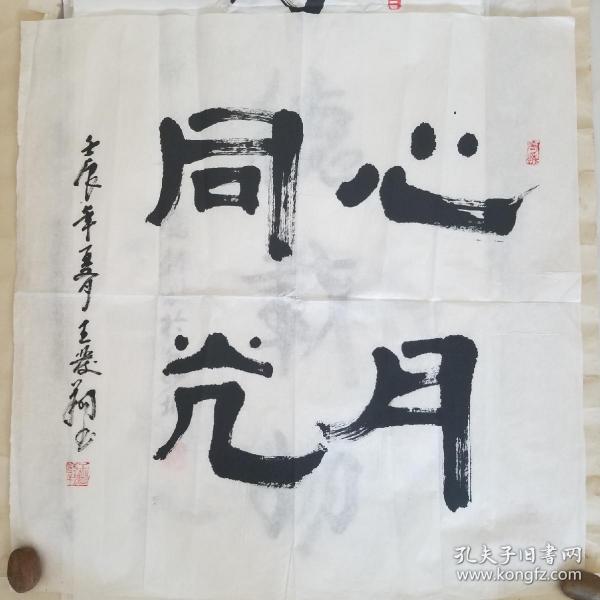 心月
同光
壬辰年夏月王发翔书
孔夫子旧书网
www.kongfz.com